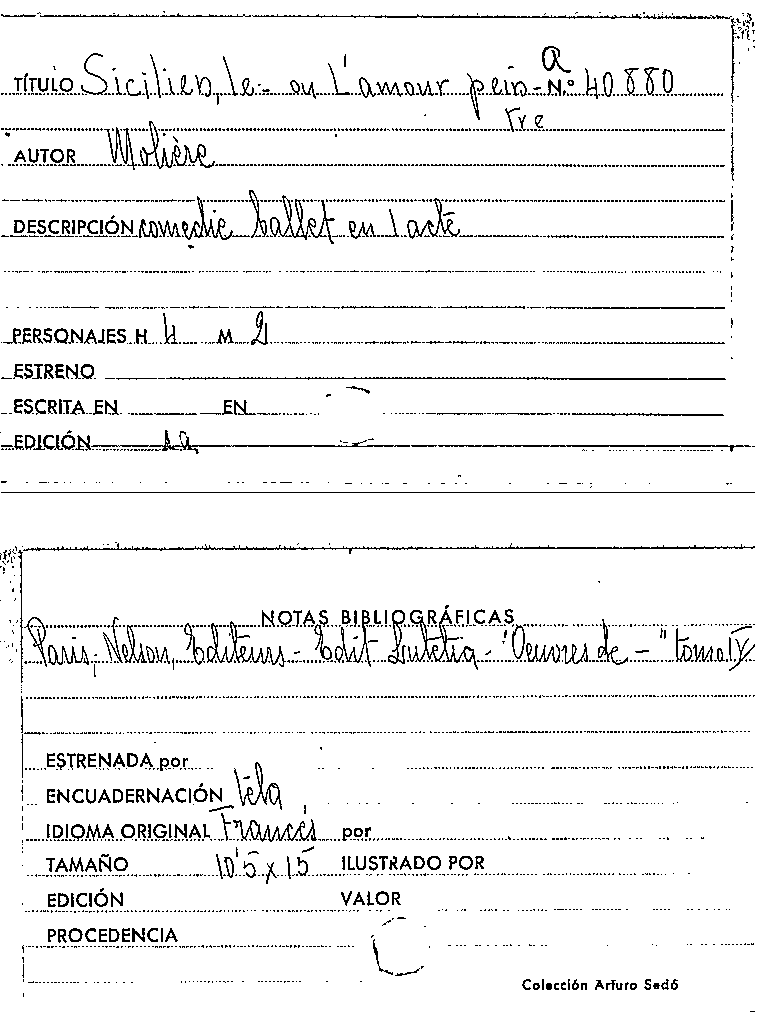 a
TÍTULO Sicilien, le - ou L'amour pein- N.º 40880
tre
AUTOR Molière
DESCRIPCIÓN comedie ballet en 1 acte
PERSONAJES H 4 M 2
ESTRENO
ESCRITA EN EN
EDICIÓN sa
NOTAS BIBLIOGRÁFICAS
Paris,- Nelson, Editeurs - Edit Lutetia - "Oeuvres de - " tomo IV
ESTRENADA por
ENCUADERNACIÓN tela
IDIOMA ORIGINAL Francés por
TAMAÑO 10'5 x 15 ILUSTRADO POR
EDICIÓN VALOR
PROCEDENCIA
Colección Arturo Sedó